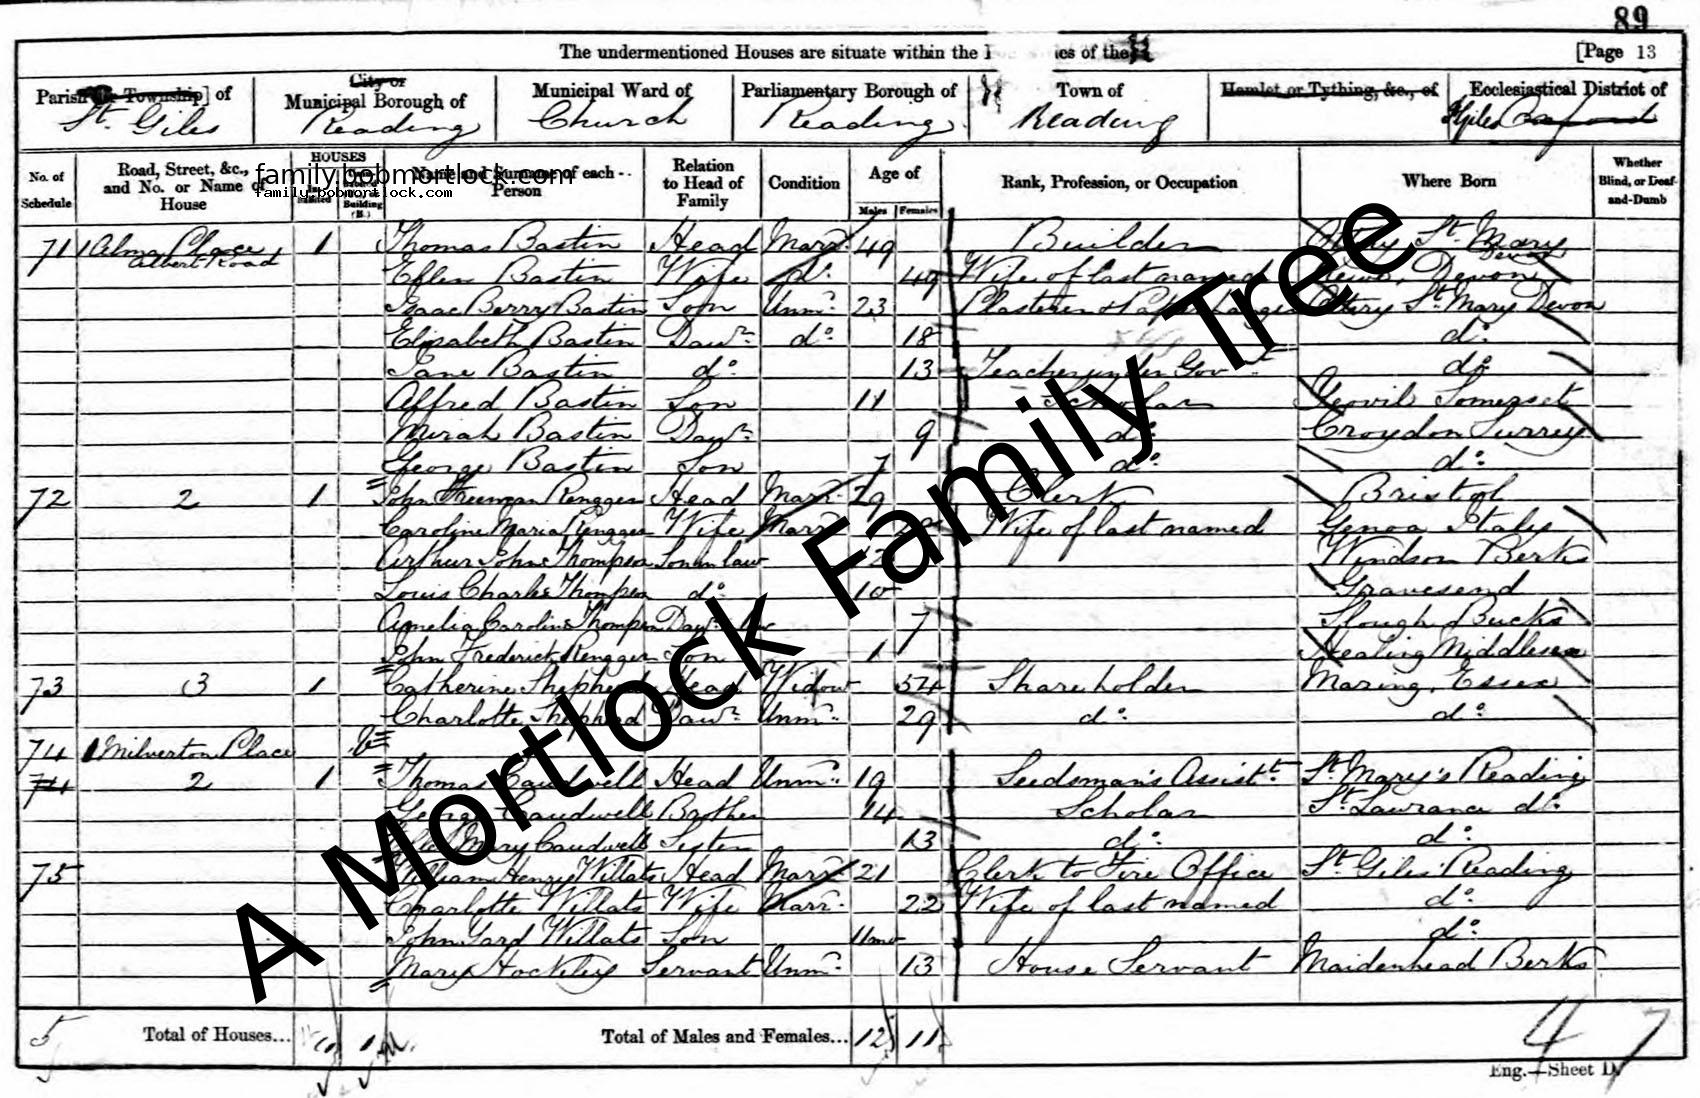 89
The undermentioned Houses are situate within the es of the [Page 13
Parish or Township] of City or Municipal Borough of Municipal Ward of Parliamentary Borough of Town of Hamlet or Tything, &c., of Ecclesiastical District of
St. Giles Reading Church Reading Reading St Giles
No. of Schedule Road, Street, &c., and No. or Name of House HOUSES Name and Surname of each Person Relation to Head of Family Condition Age of Males Females Rank, Profession, or Occupation Where Born Whether Blind, or Deaf-and-Dumb
family.bobmortlock.com
family.bobmortlock.com
71 1 Alma Place Albert Road 1 Thomas Bastin Head Marr. 49 Builder Ottery St. Mary Devon
Ellen Bastin Wife do. 49 Wife of last named Devon
Isaac Berry Bastin Son Unm. 23 Plasterer & Paper Ottery St. Mary Devon
Elizabeth Bastin Daur. do. 18 do.
Jane Bastin do. 13 Teacher under Govt do.
Alfred Bastin Son 11 Scholar Yeovil Somerset
Mirah Bastin Daur. 9 do. Croydon Surrey
George Bastin Son 7 do. do.
72 2 1 John Freeman Rengger Head Marr. 29 Clerk Bristol
Caroline Maria Rengger Wife Marr. Wife of last named Genoa Italy
Arthur John Thompson Son in law 12 Windsor Berks
Louis Charles Thompson do. 10 Gravesend
Amelia Caroline Thompson Daur. 7 Slough Bucks
John Frederick Rengger Son 1 Healing Middlesex
73 3 1 Catherine Shepherd Head Widow 54 Shareholder Maring, Essex
Charlotte Shepherd Daur. Unm. 29 do. do.
74 1 Milverton Place
74 2 1 Thomas Caudwell Head Unm. 19 Seedsman's Assistt St. Mary's Reading
George Caudwell Brother 14 Scholar St. Lawrance do.
Mary Caudwell Sister 13 do. do.
75 William Henry Willats Head Marr. 21 Clerk to Fire Office St. Giles Reading
Charlotte Willats Wife Marr. 22 Wife of last named do.
John Yard Willats Son 11mo do.
Mary Hockley Servant Unm. 13 House Servant Maidenhead Berks
A Mortlock Family Tree
5 Total of Houses... 1 Total of Males and Females... 12 11
47
Eng.—Sheet D.